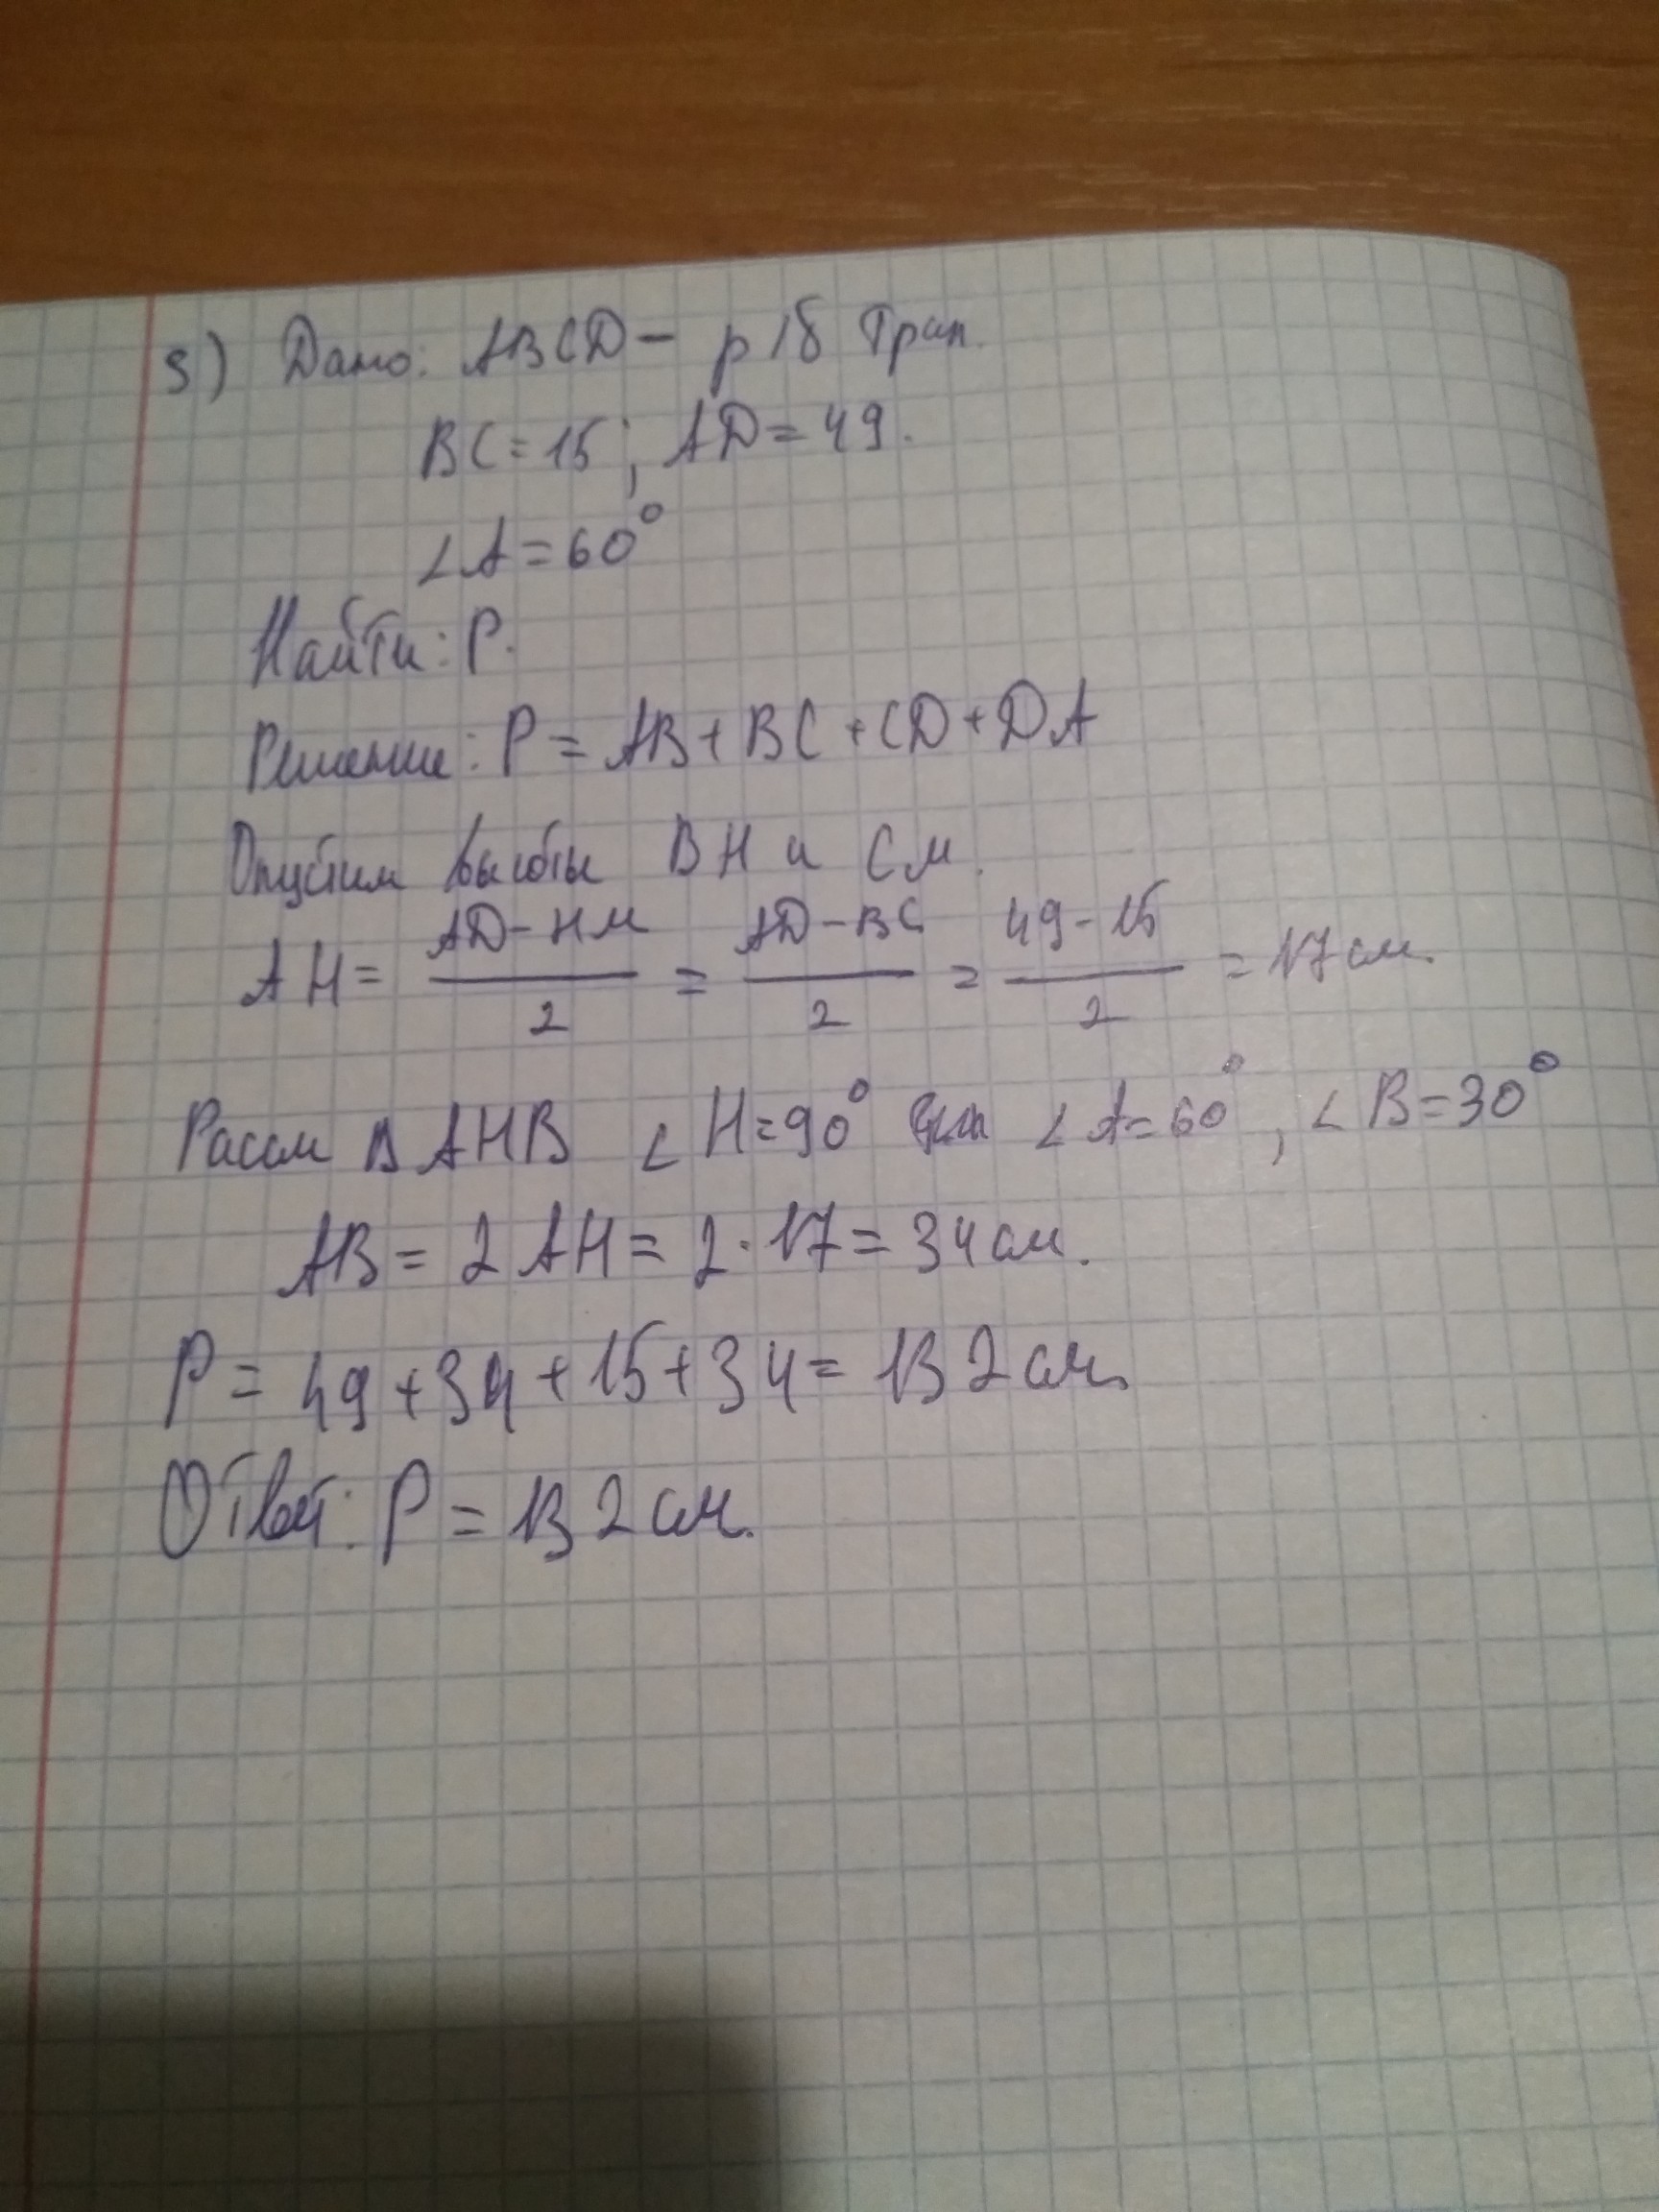 5) Дано: ABCD - р/б трап.
BC = 15 ; AD = 49.
∠A = 60°
Найти: P.
Решение: P = AB + BC + CD + DA
Опустим высоты BH и CM.
AH = (AD - HM)/2 = (AD - BC)/2 = (49 - 15)/2 = 17 см.
Рассм Δ AHB ∠H = 90° если ∠A = 60°, ∠B = 30°
AB = 2 AH = 2 · 17 = 34 см.
P = 49 + 34 + 15 + 34 = 132 см.
Ответ: P = 132 см.